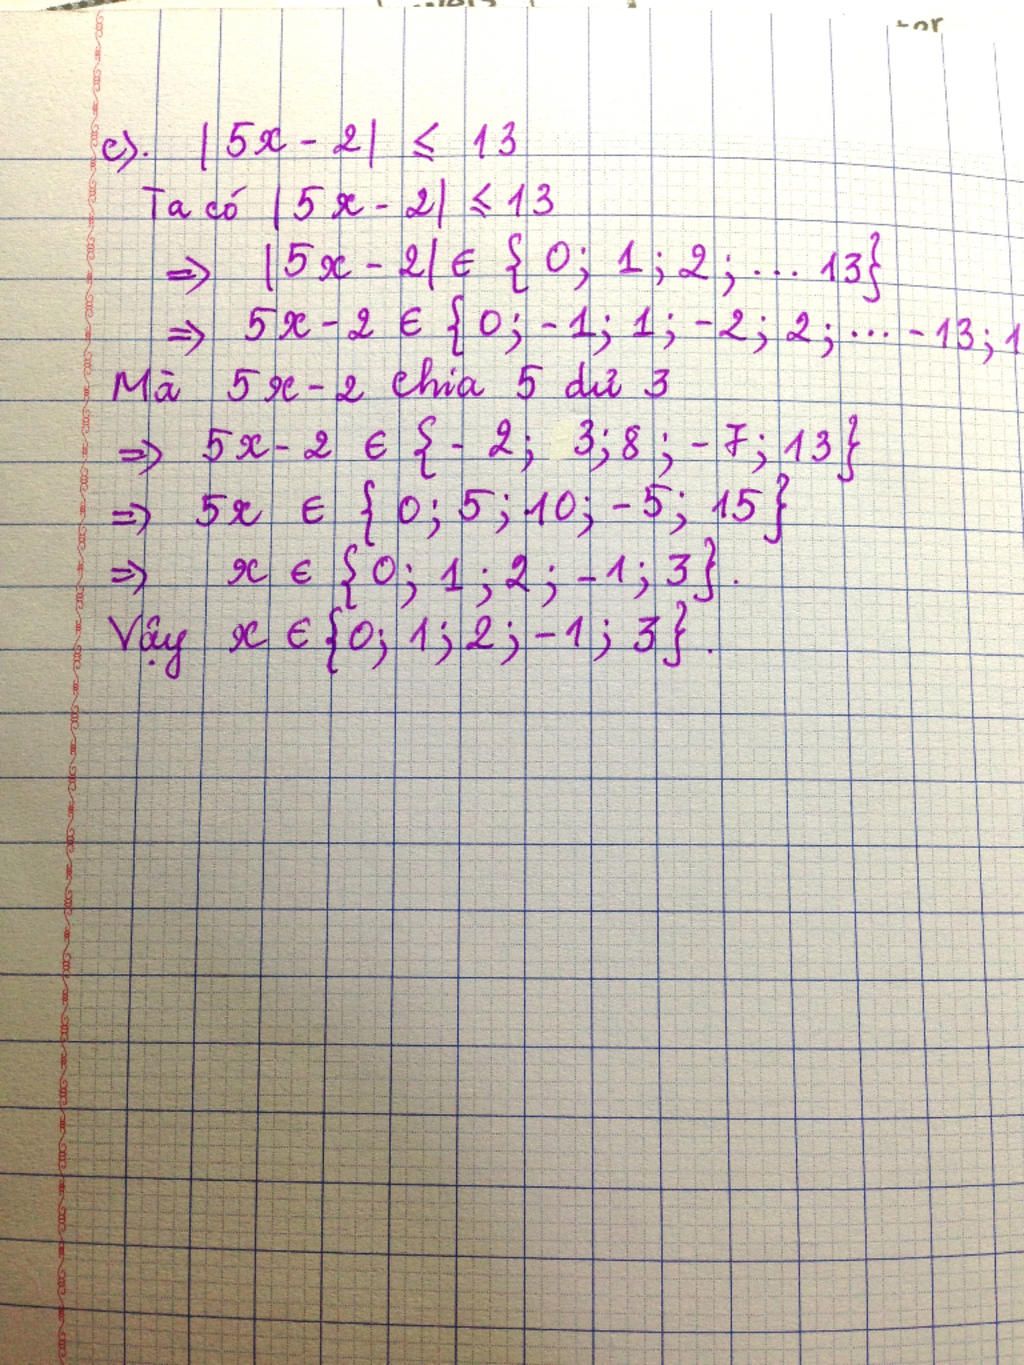 c). |5x - 2| ≤ 13
Ta có |5x - 2| ≤ 13
=> |5x - 2| ∈ {0; 1; 2; ... 13}
=> 5x - 2 ∈ {0; -1; 1; -2; 2; ... -13; 1
Mà 5x - 2 chia 5 dư 3
=> 5x - 2 ∈ {- 2; 3; 8; -7; 13}
=> 5x ∈ {0; 5; 10; -5; 15}
=> x ∈ {0; 1; 2; -1; 3}.
Vậy x ∈ {0; 1; 2; -1; 3}.